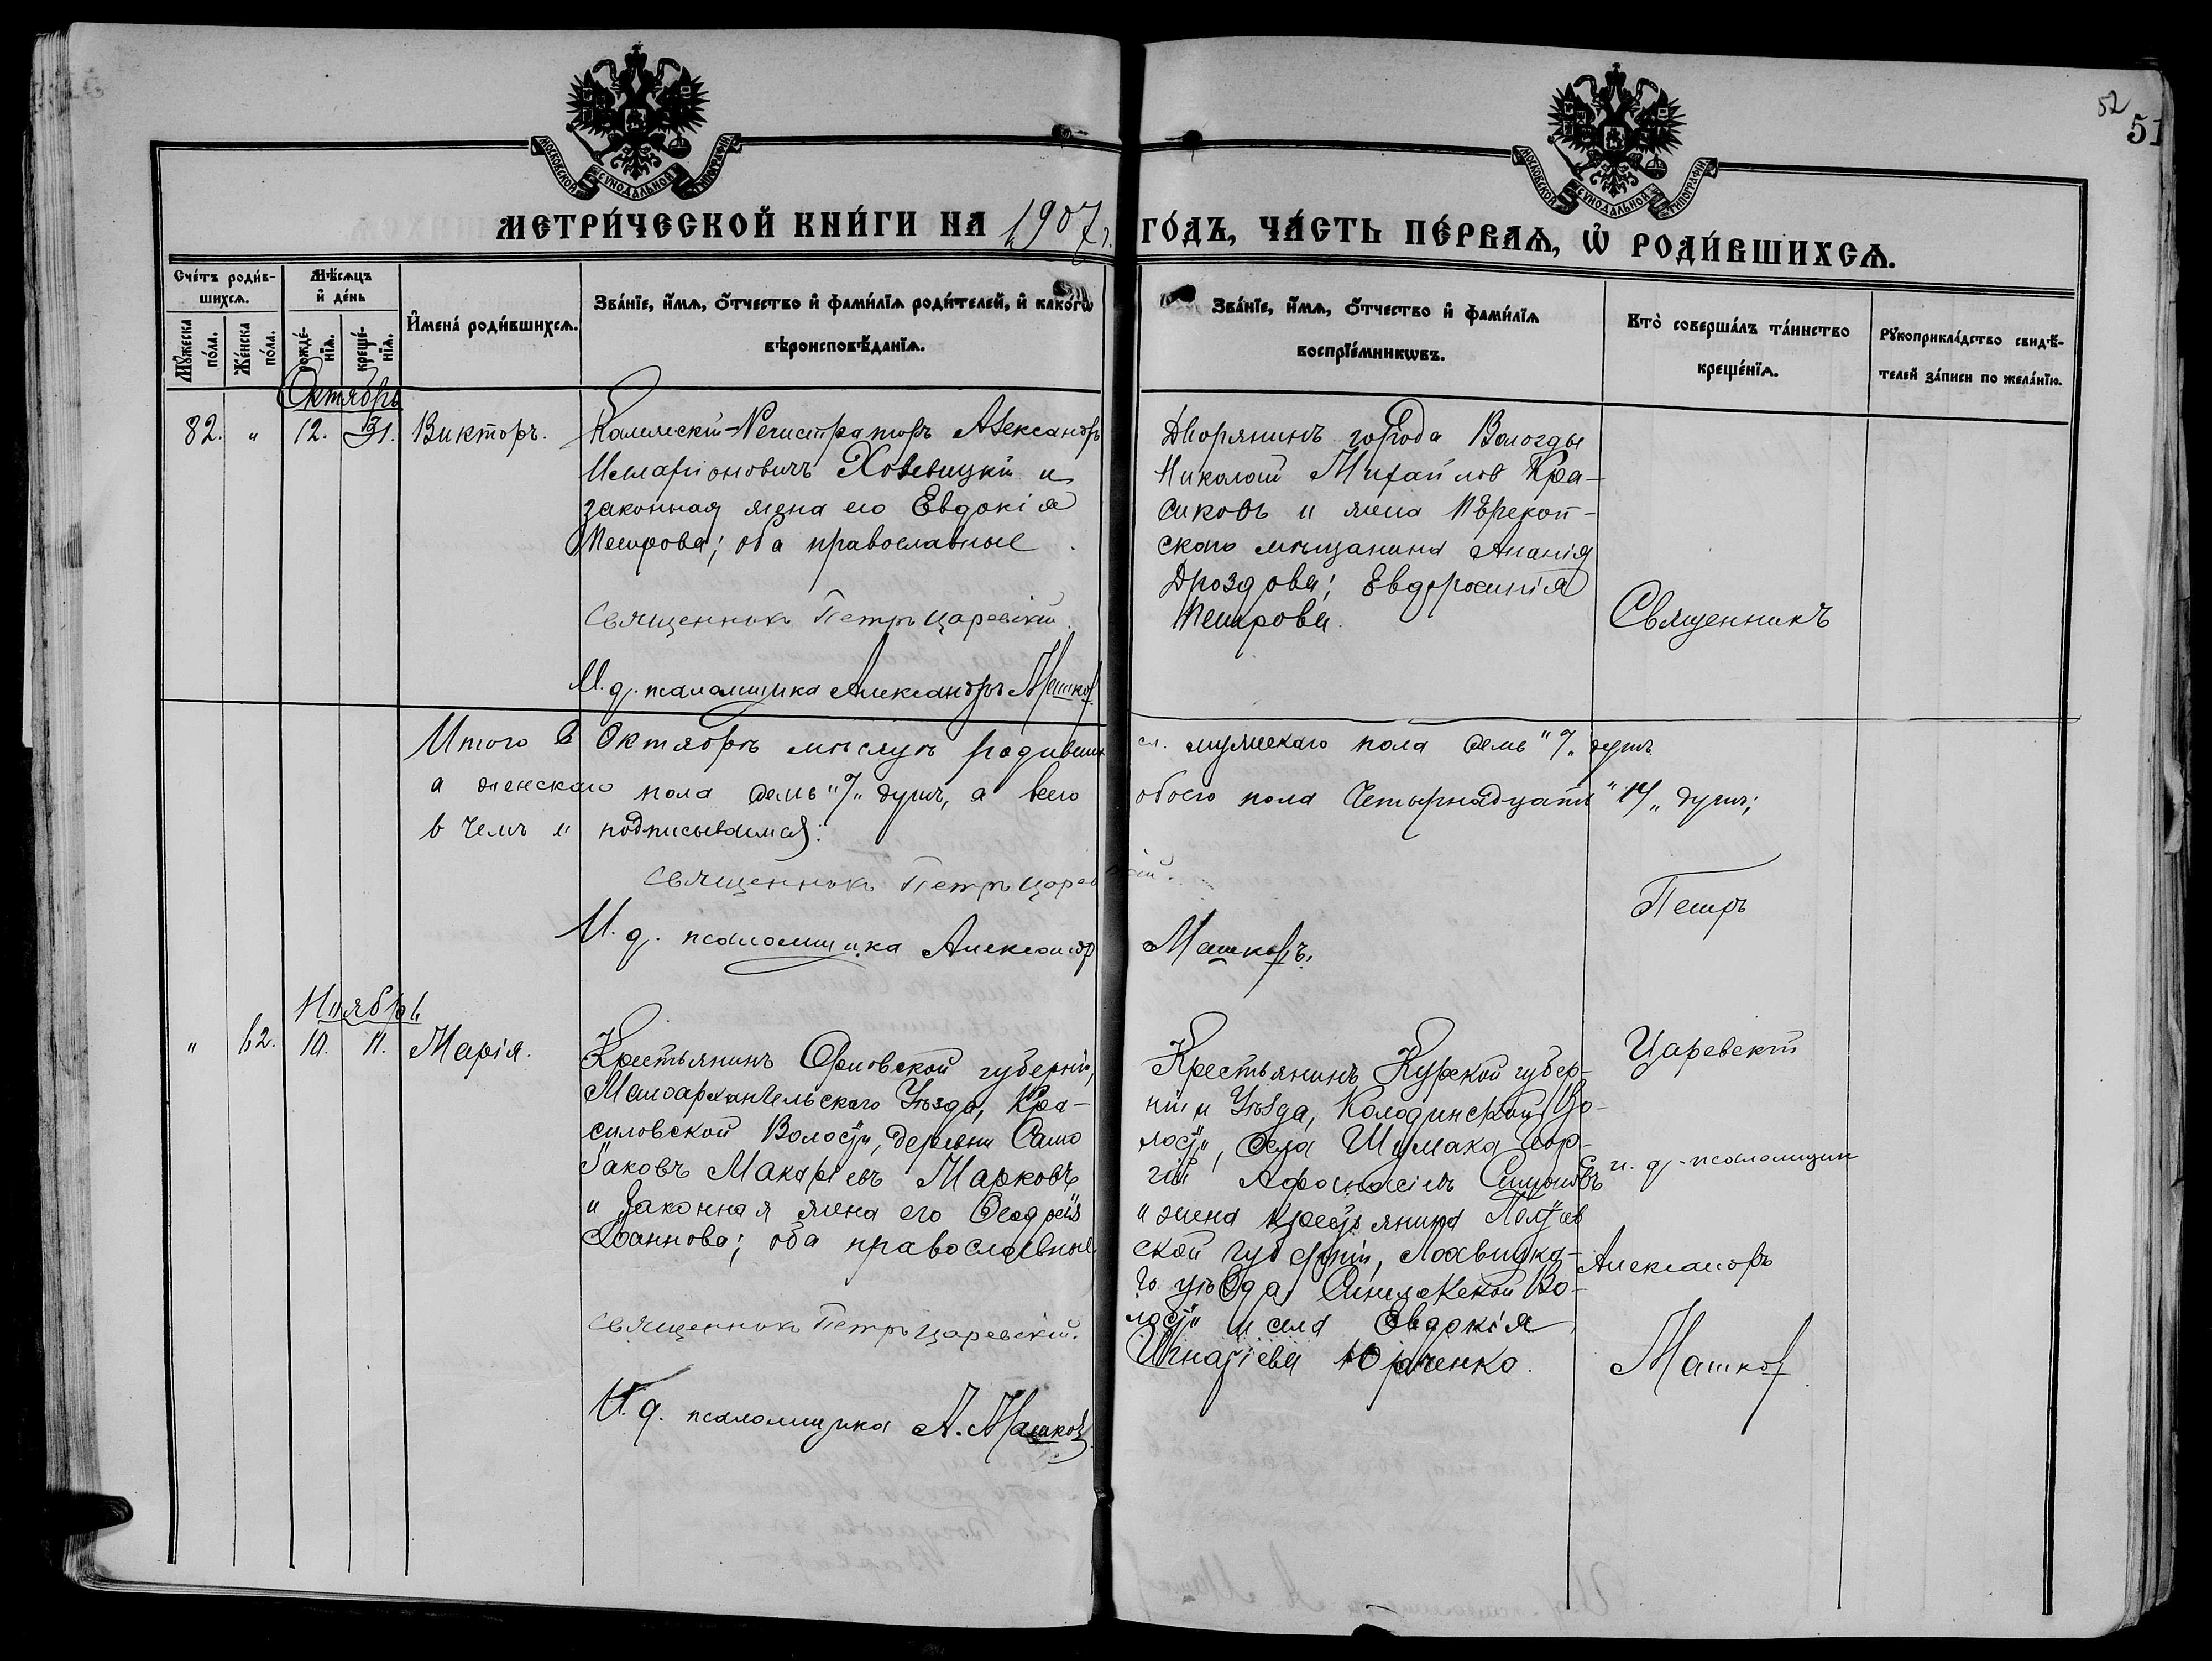 52
51
МОСКОВСКОЙ СѴНОДАЛЬНОЙ ТИПОГРАФІИ
МОСКОВСКОЙ СѴНОДАЛЬНОЙ ТИПОГРАФІИ
МЕТРИ́ЧЕСКОЙ КНИ́ГИ НА 1907 г. ГО́ДЪ, ЧА́СТЬ ПЕ́РВАѦ, Ѡ҆ РОДИ́ВШИХСѦ.
Сче́тъ роди́в-
шихсѧ.
Мꙋ́жеска по́ла.
Же́нска по́ла.
Мѣ́сѧцъ
и҆ де́нь
рожде́-нїѧ.
креще́-нїѧ.
И҆мена́ роди́вшихсѧ.
Зва́нїе, и҆́мѧ, о҆́тчество и҆ фами́лїѧ роди́телей, и҆ како́гѡ
вѣроисповѣ́данїѧ.
Зва́нїе, и҆́мѧ, о҆́тчество и҆ фами́лїѧ
воспрїе́мникѡвъ.
Кто̀ соверша́лъ та́инство
креще́нїѧ.
Рꙋкоприкла́дство свидѣ́-
телей за́писи по жела́нїю.
Октябрь
82. " 12. 31. Викторъ.
Коллежскій-Регистраторъ Александръ
Илларіоновичъ и
законная жена его Евдокія
Петрова; оба православные.
Священникъ Петръ Царевскій.
И. д. псаломщика Александръ Машков
Дворянинъ города Вологды
Николай Михайлов Кра-
сиковъ и жена Пѣрекоп-
скаго мѣщанина Ананія
Дроздова; Евфросинія
Петрова.
Священникъ
Итого в Октябрѣ мѣсяцѣ родивших ся. мужескаго пола семь "7" душъ
а женскаго пола семь "7" душъ, а всего обоего пола Четырнадцать "14" душъ;
в чемъ и подписываемся:
Священникъ Петръ Царевскій.
И. д. псаломщика Александръ Машковъ.
Петръ
Ноябрь
" 62. 10. 11. Марія.
Крестьянинъ Орловской губерніи,
Малоархангельскаго Уѣзда, Кра-
силовской Волости, деревни
Іаковъ Макаріевъ Марковъ
и Законная жена его Ѳеодосія
Іоаннова; оба православные
Священникъ Петръ Царевскій.
И. д. псаломщика А. Машковъ.
Крестьянинъ Курской губер-
ніи и Уѣзда, Колодинской Во-
лости, села Шумака Геор-
гій Афанасіевъ Симоновъ
и жена крестьянина Полтав
ской губерніи, Лохвицка-
го уѣзда, Во-
лости и села Евдокія
Игнатіева Юрченко.
Царевскій
и. д. псаломщик
Александръ
Машков